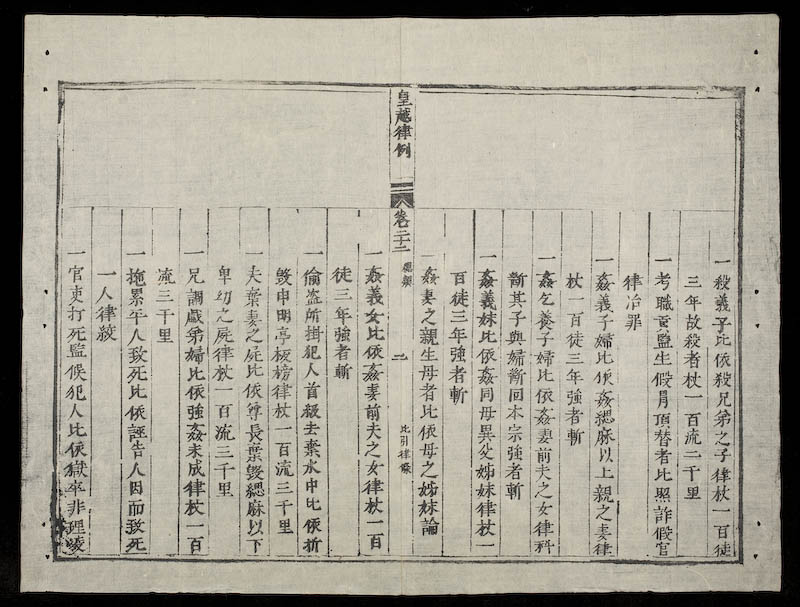 一殺義子比依殺兄弟之子律杖一百徒
三年故殺者杖一百流二千里
一考職貢監生假冒頂替者比照詐假官
律治罪
一姦義子婦比依姦緦麻以上親之妻律
杖一百徒三年強者斬
一姦乞養子婦比依姦妻前夫之女律科
斷其子與婦斷回本宗強者斬
一姦義妹比依姦同母異父姊妹律杖一
百徒三年強者斬
一姦妻之親生母者比依母之姊妹論
皇越律例
卷二十二
二
比引律條
一姦義女比依姦妻前夫之女律杖一百
徒三年強者斬
一偷盜所掛犯人首級去棄水中比依拆
毀申明亭板榜律杖一百流三千里
一夫棄妻之屍比依尊長棄毀緦麻以下
卑幼之屍律杖一百流三千里
一兄調戲弟婦比依強姦未成律杖一百
流三千里
一拖累平人致死比依誣告人因而致死
一人律絞
一官吏打死監候犯人比依獄卒非理凌